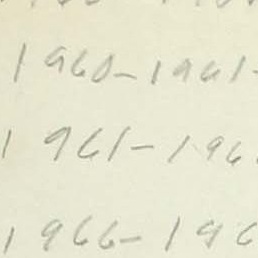 1960-1961-
1961-196
1966-196